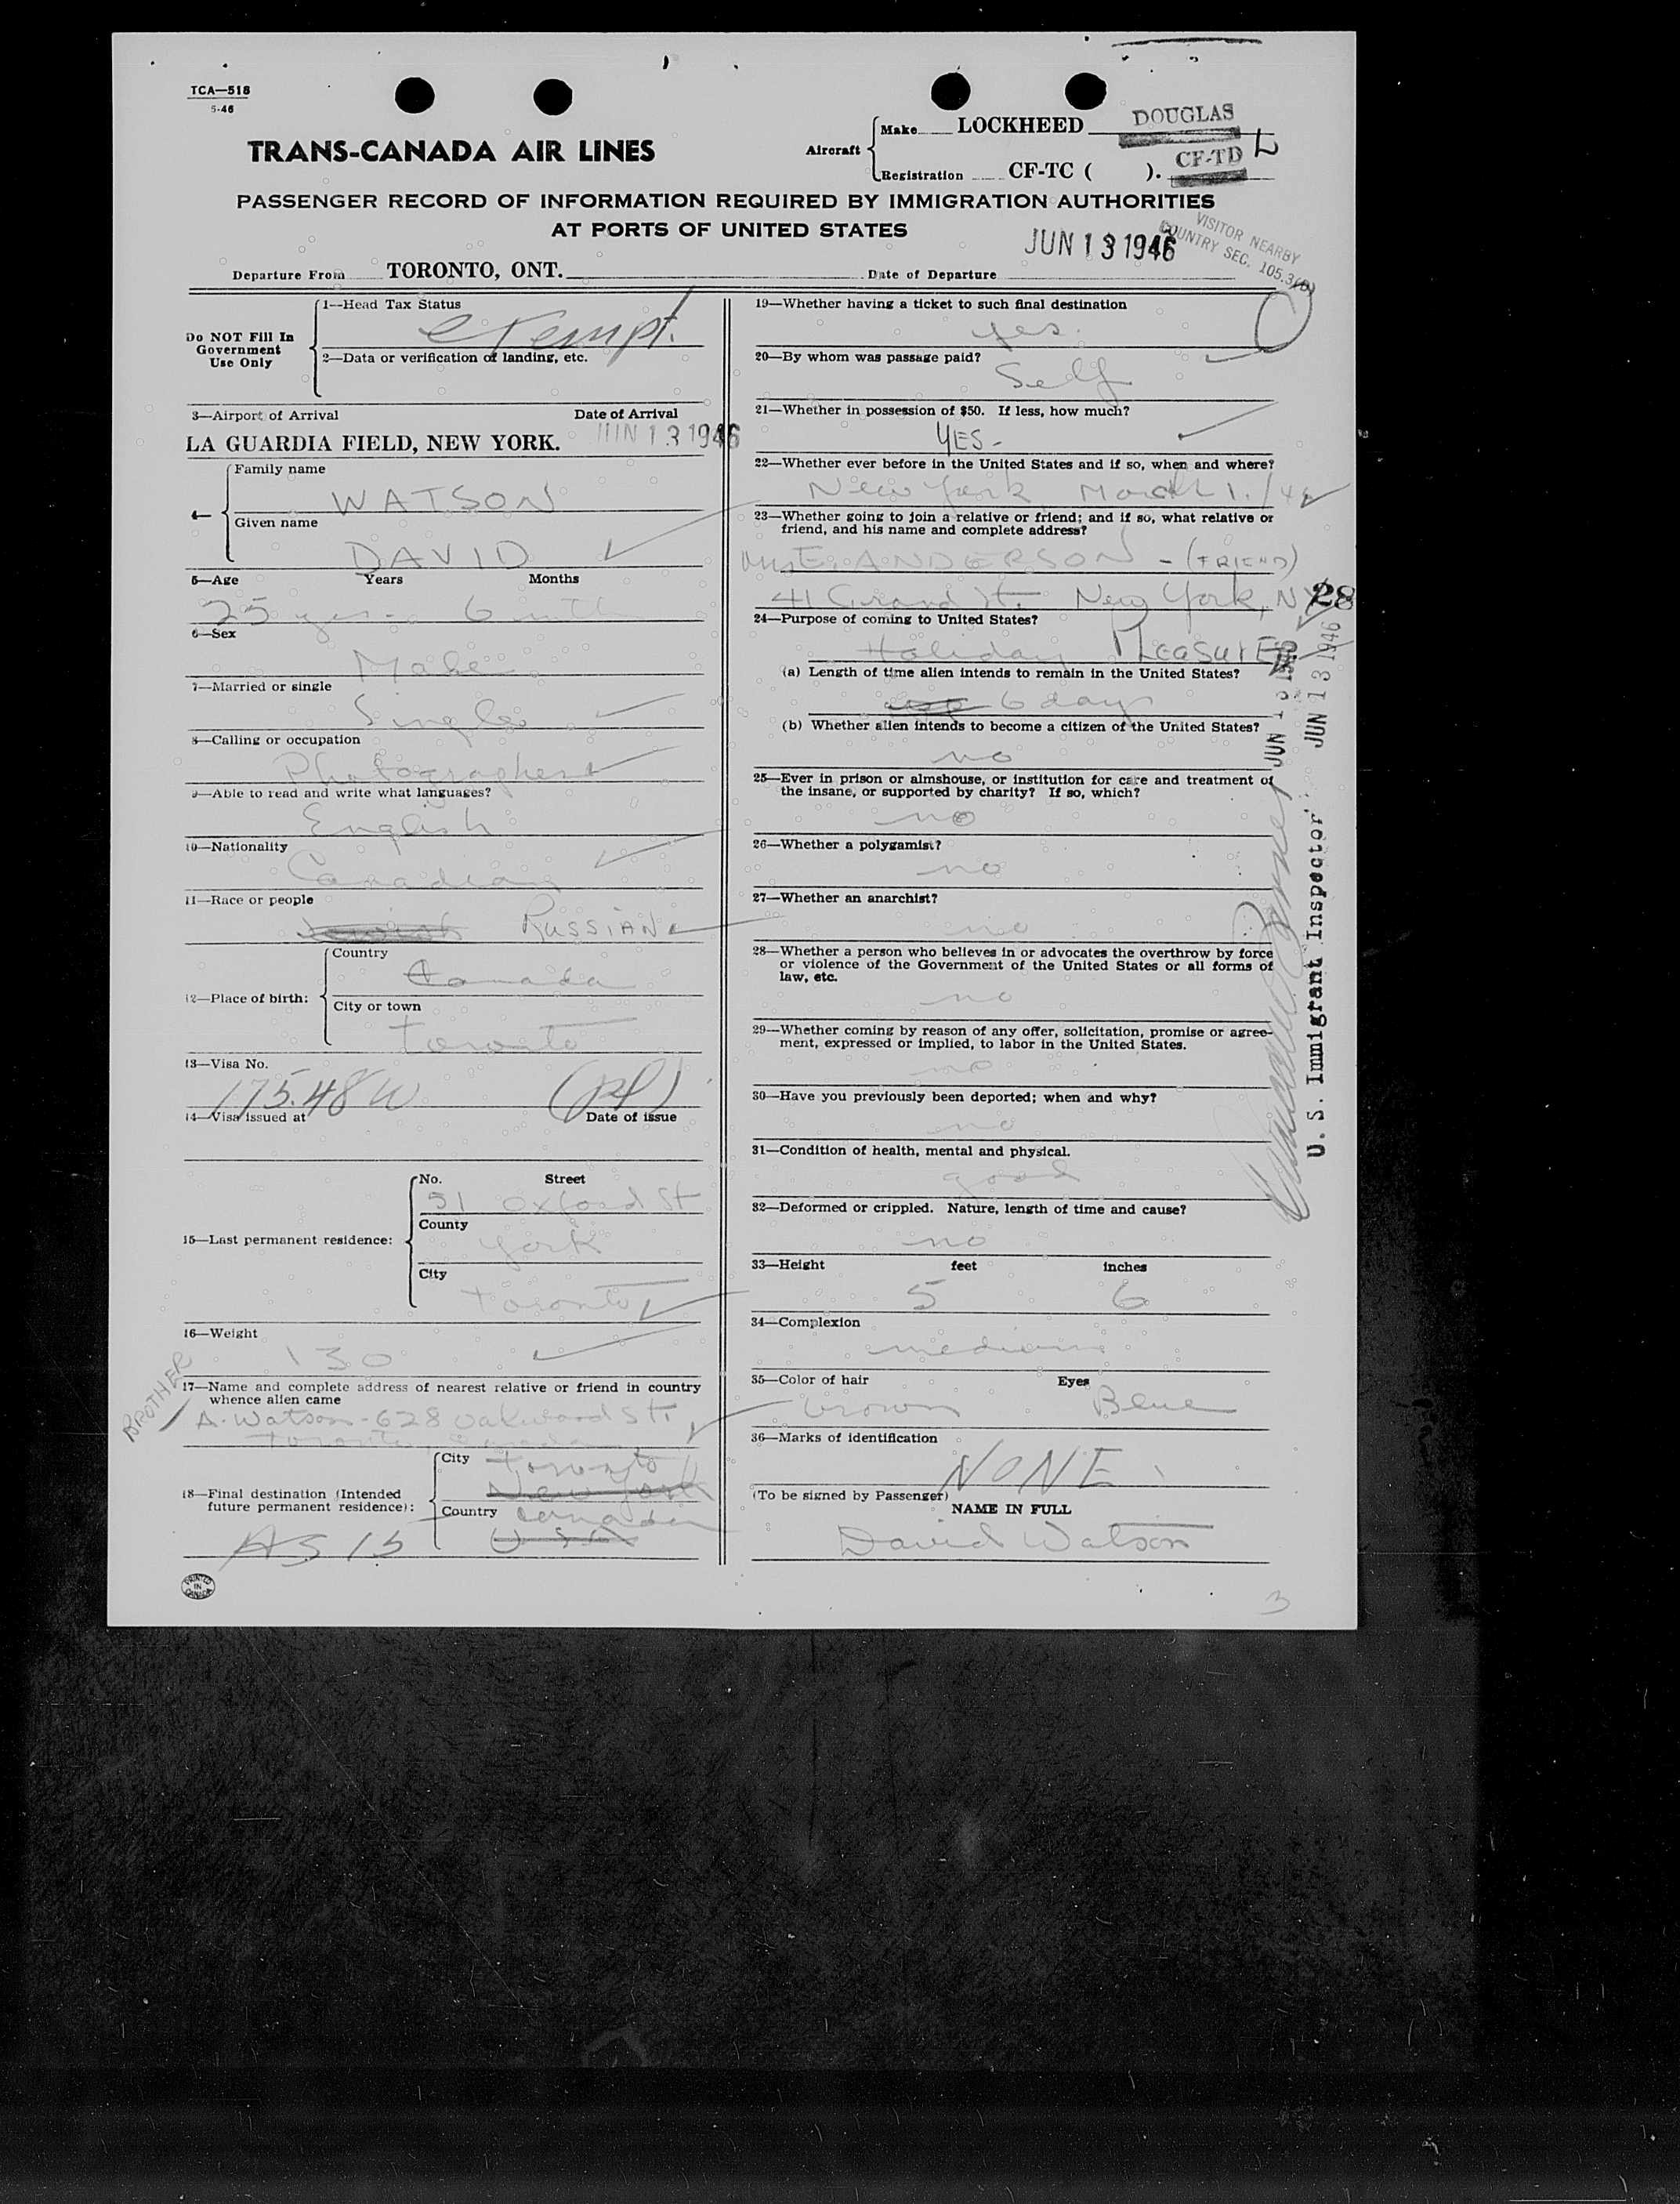 TCA—518
5-46
TRANS-CANADA AIR LINES
Aircraft
Make LOCKHEED DOUGLAS
Registration CF-TC ( ). CF-TD L
PASSENGER RECORD OF INFORMATION REQUIRED BY IMMIGRATION AUTHORITIES
AT PORTS OF UNITED STATES
JUN 13 1946
VISITOR NEARBY
COUNTRY SEC. 105.3(B)
Departure From TORONTO, ONT. Date of Departure
Do NOT Fill In
Government
Use Only
1—Head Tax Status
exempt.
2—Data or verification of landing, etc.
3—Airport of Arrival Date of Arrival
LA GUARDIA FIELD, NEW YORK. JUN 13 1946
4—
Family name
WATSON
Given name
DAVID
5—Age Years Months
25 yrs - 6 mth
6—Sex
Male
7—Married or single
Single
8—Calling or occupation
Photographer
9—Able to read and write what languages?
English
10—Nationality
Canadian
11—Race or people
RUSSIAN
12—Place of birth:
Country
Canada
City or town
Toronto
13—Visa No.
175.48 W
14—Visa issued at Date of issue
15—Last permanent residence:
No. Street
51 Oxford St
County
York
City
Toronto
16—Weight
130
BROTHER
17—Name and complete address of nearest relative or friend in country
whence alien came
A. Watson - 628 St.
Toronto Canada
18—Final destination (Intended
future permanent residence):
City Toronto
New York
Country Canada
USA
PRINTED
IN
CANADA
19—Whether having a ticket to such final destination
yes.
20—By whom was passage paid?
Self
21—Whether in possession of $50. If less, how much?
YES -
22—Whether ever before in the United States and if so, when and where?
New York March 1./46
23—Whether going to join a relative or friend; and if so, what relative or
friend, and his name and complete address?
E. ANDERSON - (FRIEND)
41 Grand St. New York, NY
28
24—Purpose of coming to United States?
Holiday PLEASURE
(a) Length of time alien intends to remain in the United States?
6 days
(b) Whether alien intends to become a citizen of the United States?
no
25—Ever in prison or almshouse, or institution for care and treatment of
the insane, or supported by charity? If so, which?
no
26—Whether a polygamist?
no
27—Whether an anarchist?
no
28—Whether a person who believes in or advocates the overthrow by force
or violence of the Government of the United States or all forms of
law, etc.
no
29—Whether coming by reason of any offer, solicitation, promise or agree-
ment, expressed or implied, to labor in the United States.
no
30—Have you previously been deported; when and why?
no
31—Condition of health, mental and physical.
good
32—Deformed or crippled. Nature, length of time and cause?
no
33—Height feet inches
5 6
34—Complexion
medium
35—Color of hair Eyes
brown Blue
36—Marks of identification
NONE
(To be signed by Passenger)
NAME IN FULL
David Watson
U. S. Immigrant Inspector
JUN 13 1946
3